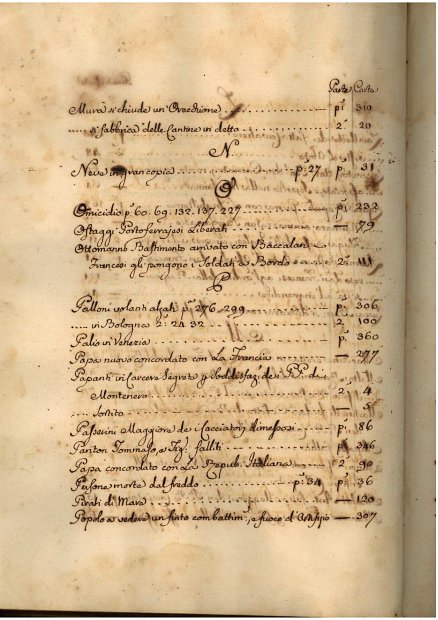 Parte Carte
Mura si chiude un' Orecchione pᵃ 310
si fabbrica delle Cantore in detta 2ᵃ 20
N
Neve in gran copia pᵃ 27 pᵃ 31
O
Omicidio pᵃ 60. 69. 132. 137. 227 pᵃ 232
Ostaggi Portoferrajesi Liberati — 79
Ottomanno Bastimento arrivato con Baccalari
Francesi gli pongono i Soldati a Bordo 2ᵃ 111
P
Palloni volanti alzati pᵃ 276. 299 pᵃ 306
in Bologna 2ᵃ 24. 32 2 100
Palio in Venezia pᵃ 360
Papa nuovo concordato con La Francia — 277
Papanti in Carcere Segrete p Soddisfaz: de i PP. di
Montenero 2 4
Sortito —
Passerini Maggiore de i Cacciatori dimesso pᵃ 86
Panton Tommaso, e Figˡⁱ falliti pᵃ 346
Papa concordato con La Repub: Italiana 2 90
Persone morte dal freddo pᵃ 34 pᵃ 36
Pirati di Mare — 120
Popolo a vedere un finto combattimᵒ, e fuoco d'Artifizio — 307